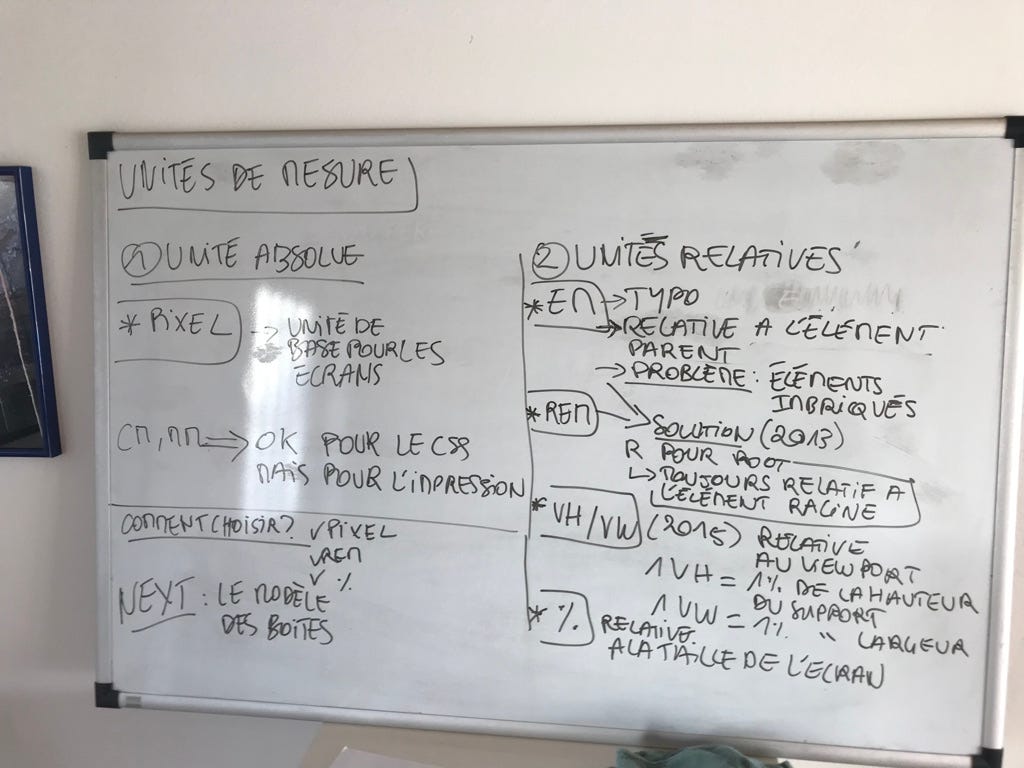 UNITÉS DE MESURE
① UNITÉ ABSOLUE
* PIXEL → UNITÉ DE
BASE POUR LES
ECRANS
CM, MM ⇒ OK POUR LE CSS
MAIS POUR L'IMPRESSION
COMMENT CHOISIR? ✓ PIXEL
✓ REM
✓ %
NEXT : LE MODÈLE
DES BOITES
② UNITÉS RELATIVES
* EM → TYPO
→ RELATIVE A L'ÉLÉMENT
PARENT
→ PROBLÈME : ÉLÉMENTS
IMBRIQUÉS
* REM → SOLUTION (2013)
R POUR ROOT
↳ TOUJOURS RELATIF A
L'ÉLÉMENT RACINE
* VH/VW (2015) RELATIVE
AU VIEWPORT
1 VH = 1% DE LA HAUTEUR
DU SUPPORT
1 VW = 1% " LARGEUR
* % RELATIVE
A LA TAILLE DE L'ECRAN